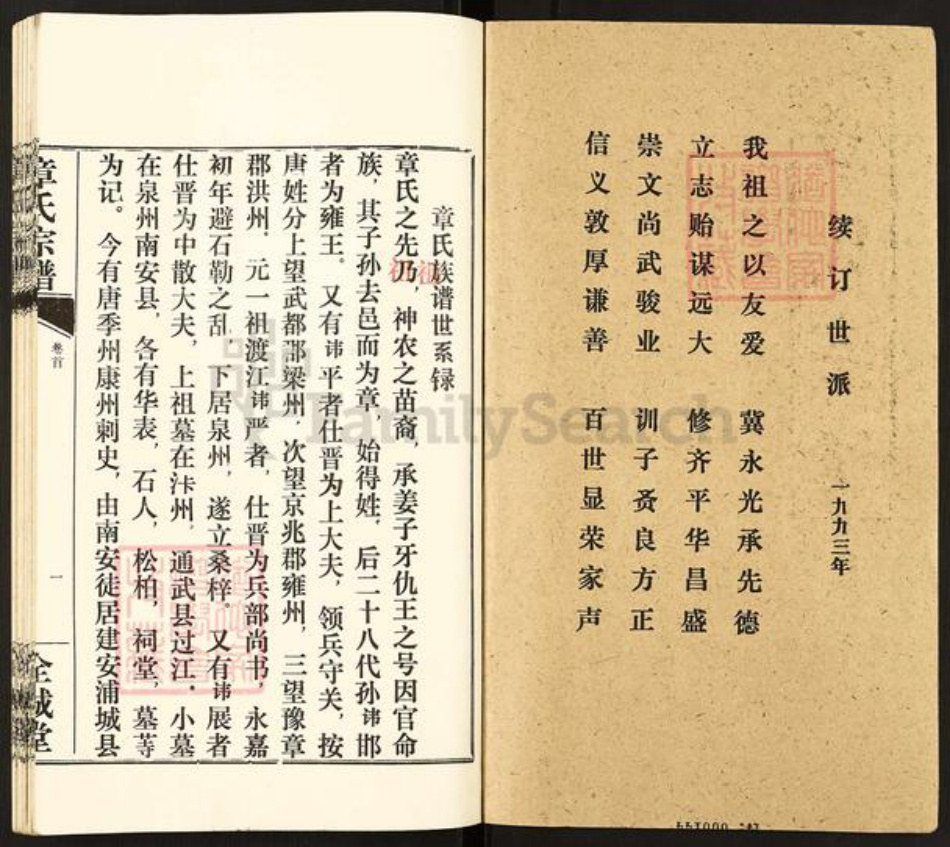 续订世派 一九九三年
我祖之以友爱 冀永光承先德
立志贻谋远大 修齐平华昌盛
崇文尚武骏业 训子 良方正
信义敦厚谦善 百世显荣家声
章氏族谱世系录
章氏之先乃，神农之苗裔，承姜子牙仇王之号因官命
族，其子孙去邑而为章，始得姓，后二十八代孙讳邯
者为雍王。又有讳平者仕晋为上大夫，领兵守关，按
唐姓分上望武都郡梁州，次望京兆郡雍州，三望豫章
郡洪州，元一祖渡江讳严者，仕晋为兵部尚书，永嘉
初年避石勒之乱，下居泉州，遂立桑梓。又有讳展者
仕晋为中散大夫，上祖墓在汴州，通武县过江．小墓
在泉州南安县，各有华表，石人，松柏，祠堂，墓荨
为记。今有唐季州康州刺史，由南安徒居建安浦城县
章氏宗谱
卷首
一
全城堂
FamilySearch